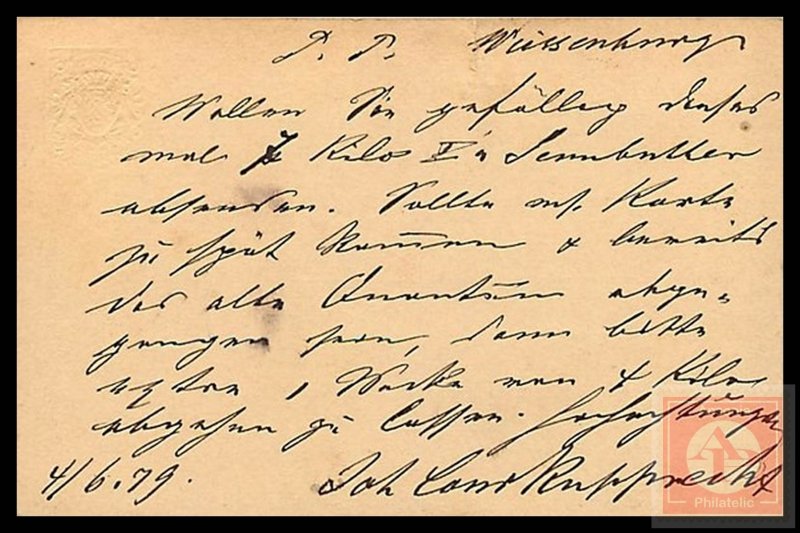 P. P. Weissenburg
Wollen Sie gefällig dieses
mal 7 Kilo Ia Sennbutter
absenden. Sollte m/. Karte
zu spät kommen & bereits
das alte Quantum abge-
gangen sein, dann bitte
extra 1 Wecke von 4 Kilo
abgehen zu lassen. Hochachtungs
4/6.79. Joh Conr Rupprecht
Philatelic